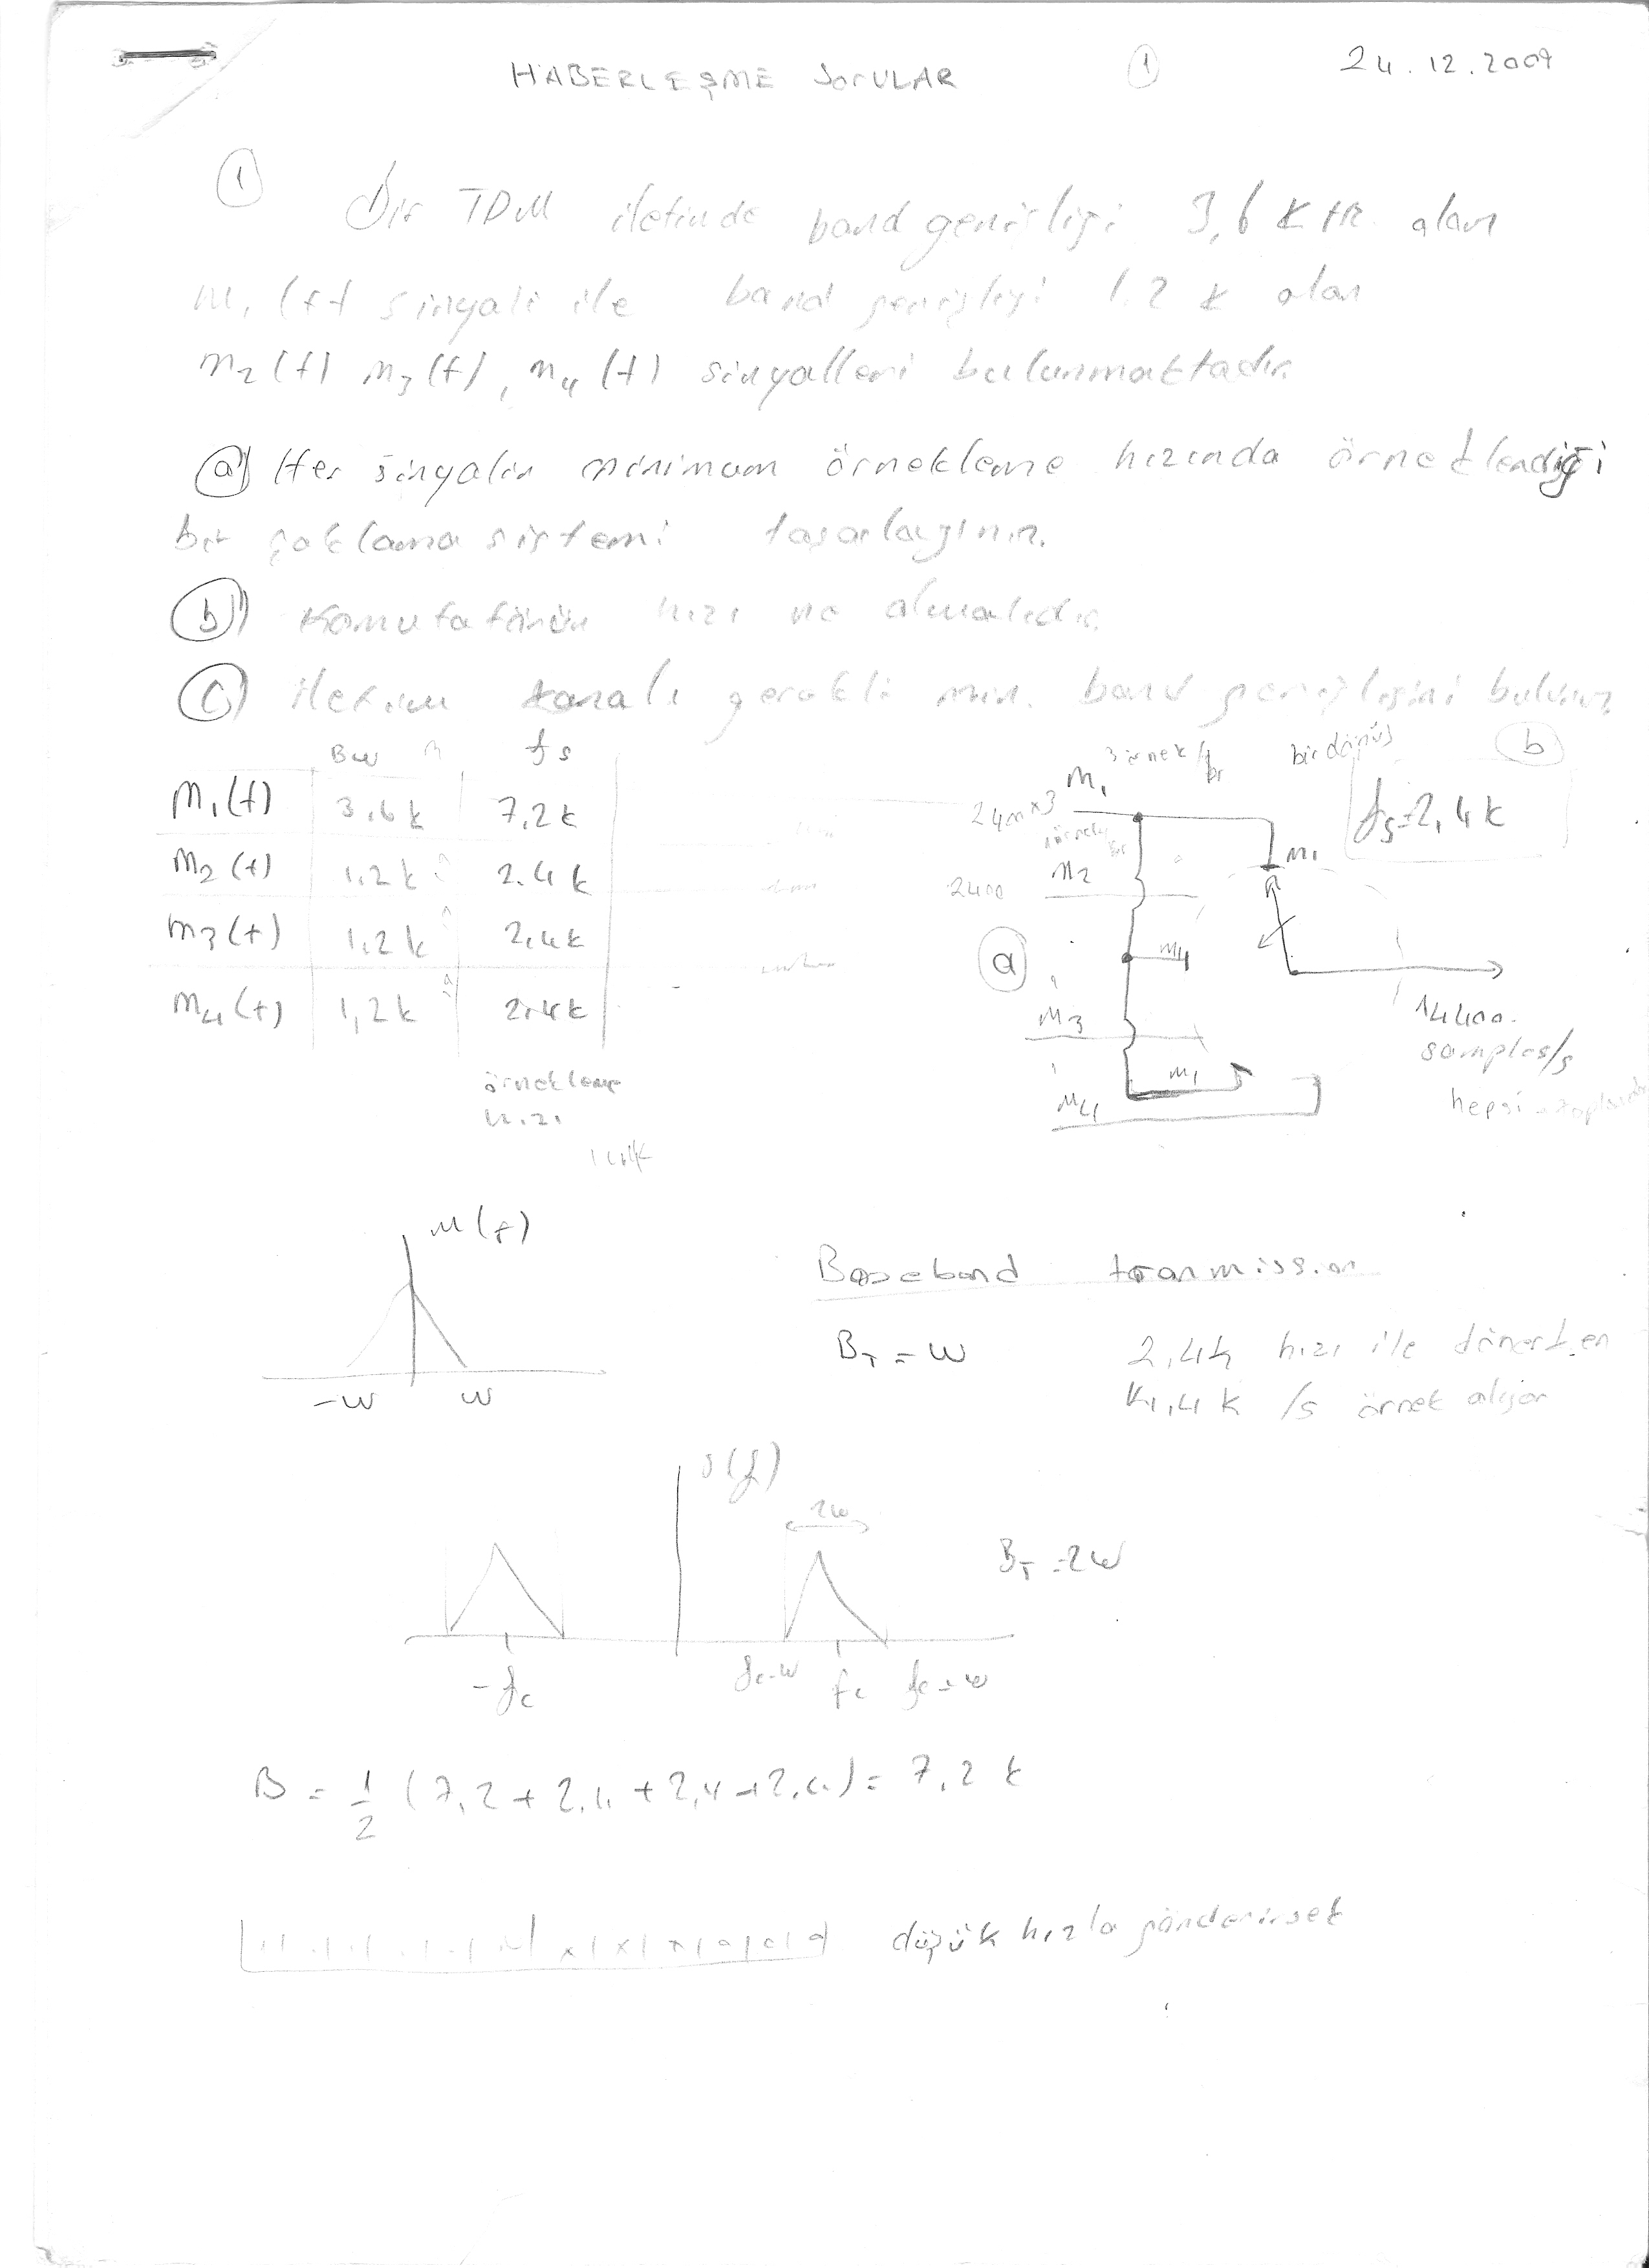 HABERLEŞME SORULAR ① 24.12.2009
① Bir TDM iletimde band genişliği 3,6 KHz olan
m₁(t) sinyali ile band genişliği 1.2 k olan
m₂(t) m₃(t), m₄(t) sinyalleri bulunmaktadır.
ⓐ Her sinyalin minimum örnekleme hızında örneklendiği
bir çoklama sistemi tasarlayınız.
ⓑ Komutatörün hızı ne olmalıdır.
ⓒ iletim kanalı gerekli min. band genişliğini bulunuz
BW fs
m₁(t) 3,6 k 7,2 k
m₂(t) 1,2 k 2.4 k
m₃(t) 1,2 k 2,4 k
m₄(t) 1,2 k 2.4 k
örnekleme
hızı
3 örnek/ br bir dönüş ⓑ
2400x3 m₁ fs=2,4 k
örnek
m₁
2400 m₂
ⓐ m₄
m₃
m₁
m₄
14400
samples/s
hepsi
M(f)
-w w
Baseband tranmission
B_T = w 2,4k hızı ile dönerken
14,4 k /s örnek alıyor
S(f)
2w
B_T = 2w
-fc fc-w fc fc+w
B = 1/2 (7,2 + 2,4 + 2,4 + 2,4) = 7,2 k
düşük hızla gönderirsek